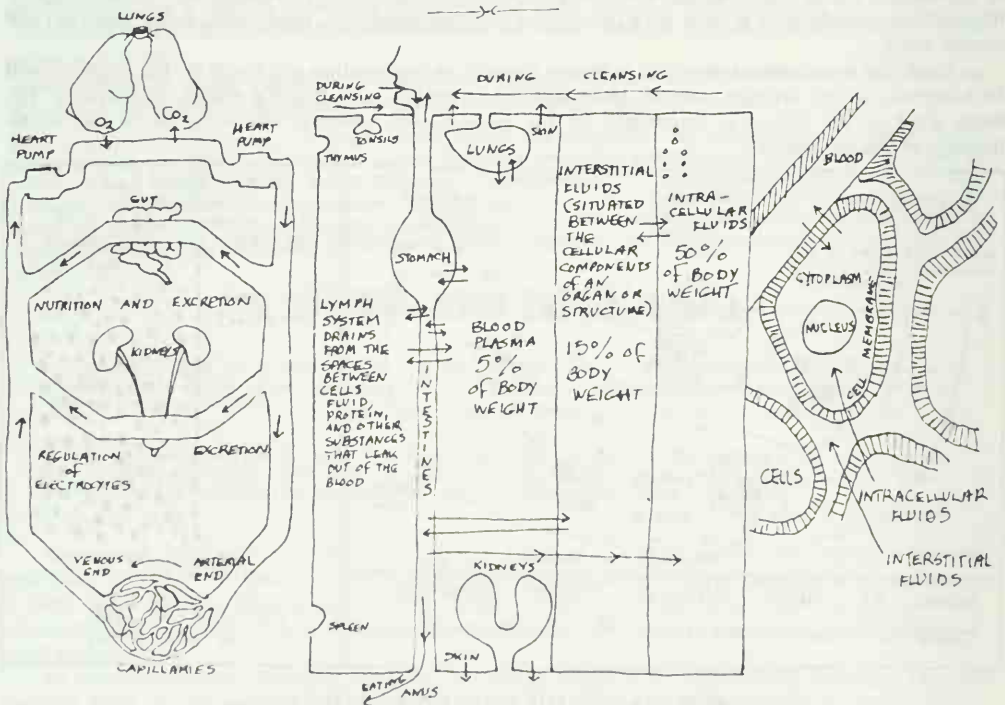 LUNGS
O2
CO2
HEART
PUMP
HEART
PUMP
GUT
NUTRITION AND EXCRETION
KIDNEYS
REGULATION
of
ELECTROCYTES
EXCRETION
VENOUS
END
ARTERIAL
END
CAPILLAMIES
DURING
CLEANSING
DURING CLEANSING
TONSILS
THYMUS
LUNGS
SKIN
STOMACH
LYMPH
SYSTEM
DRAINS
FROM THE
SPACES
BETWEEN
CELLS
FLUID,
PROTEIN,
AND OTHER
SUBSTANCES
THAT LEAK
OUT OF THE
BLOOD
INTESTINES
BLOOD
PLASMA
5%
OF BODY
WEIGHT
INTERSTITIAL
FLUIDS
(SITUATED
BETWEEN
THE
CELLULAR
COMPONENTS
OF AN
ORGAN OR
STRUCTURE)
15% OF
BODY
WEIGHT
INTRA-
CELLULAR
FLUIDS
50%
OF BODY
WEIGHT
SPLEEN
KIDNEYS
SKIN
EATING
ANUS
BLOOD
CYTOPLASM
NUCLEUS
CELL MEMBRANE
CELLS
INTRACELLULAR
FLUIDS
INTERSTITIAL
FLUIDS